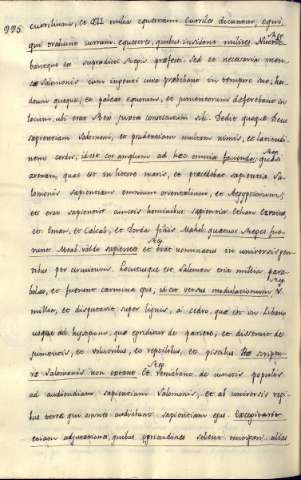 995
currulium, et XII milia equestrium. Currules dicuntur, equi,
qui trahunt currum: equestres, quibus insident milites. Nutrie-
Reg
bantque ea supradicti Regis prefecti. Sed et necessaria men-
se Salomonis cum ingenti cura prebebant in tempore suo; hor-
deum quoque, et paleas equorum, et jumentorum deferebant in
locum, ubi erat Rex juxta constitutum sibi. Dedit quoque Deus
sapientiam Salomoni, et prudentiam multam nimis, et latitudi-
nem cordis, idest cor amplum ad hec omnia facienda; quasi
Reg
arenam, quae est in littore maris, et precedebat sapientia Sa-
lomonis sapientiam omnium orientalium, et Aegyptiorum;
et erat sapientior cunctis hominibus sapientior Ethan Ezraita,
et Eman, et Calcab, et Dorda filiis Mahol, quatuor Reges fue-
runt Moab valde sapientes et erat nominatus in universis gen-
Reg
tibus per circuitum, locutusque est Salomon tria millia para-
bolas, et fuerunt carmina ejus, idest versus modulationum V
Reg
millia, et disputavit super lignis, a cedro, que est in Libano
usque ad hysopum, que egreditur de pariete, et disseruit de
jumentis, et volucribus, et reptilibus, et piscibus. Hec scriptu-
Reg
re Salomonis non extant. Et veniebant de cunctis populis
ad audiendam sapientiam Salomonis, et ab universis regi-
bus terre qui omnes audiebant sapientiam ejus. Excogitavit
etiam adjurationes, quibus egritudines solent mitigari. alias